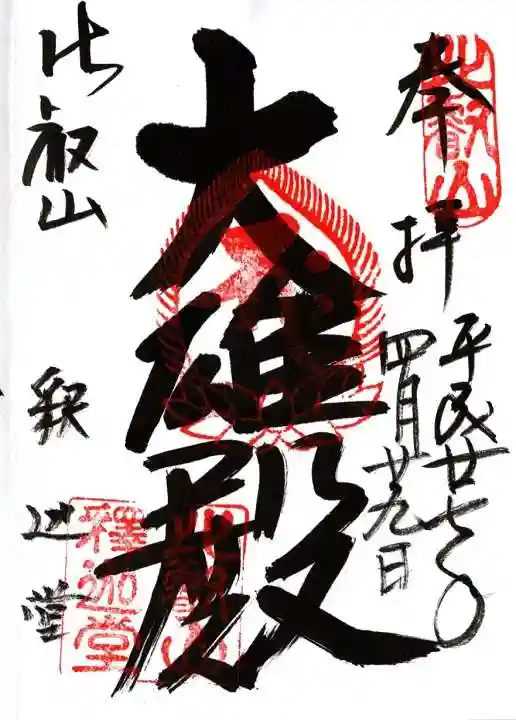 奉拝
平成廿七年
四月廿九日
大雄殿
比叡山
釈迦堂
比叡山
比叡山
釋迦堂